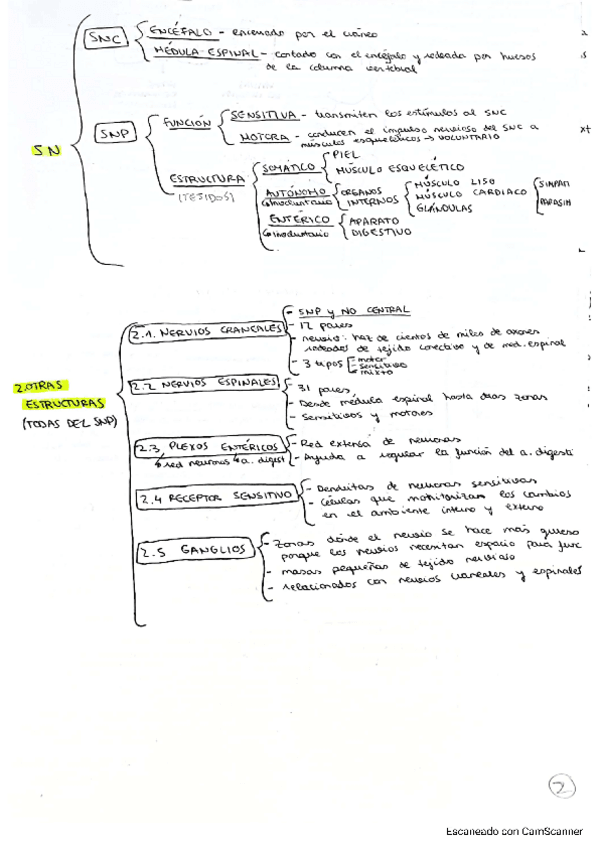 SN
SNC
ENCÉFALO - encerrado por el cráneo
MÉDULA ESPINAL - contado con el encéfalo y rodeada por huesos
de la columna vertebral
SNP
FUNCIÓN
SENSITIVA - transmiten los estímulos al SNC
MOTORA - conducen el impulso nervioso del SNC a
músculos esqueléticos → VOLUNTARIO
ESTRUCTURA
(TEJIDOS)
SOMÁTICO
PIEL
MÚSCULO ESQUELÉTICO
AUTÓNOMO
↳ involuntario
ORGANOS
INTERNOS
MÚSCULO LISO
MÚSCULO CARDIACO
GLÁNDULAS
SIMPATI
PARASIM
ENTÉRICO
↳ involuntario
APARATO
DIGESTIVO
2.OTRAS
ESTRUCTURAS
(TODAS DEL SNP)
2.1. NERVIOS CRANEALES
- SNP y NO CENTRAL
- 12 pares
- nervio: haz de cientos de miles de axones
rodeados de tejido conectivo y de med. espinal
- 3 tipos
- motor
- sensitivo
- mixto
2.2 NERVIOS ESPINALES
- 31 pares
- Desde médula espinal hasta otras zonas
- Sensitivos y motores
2.3. PLEXOS ENTÉRICOS
↳ red neuronas ↳ a. digest
- Red extensa de neuronas
- Ayuda a regular la función del a. digesti
2.4 RECEPTOR SENSITIVO
- Dendritas de neuronas sensitivas
- Células que monitorizan los cambios
en el ambiente interno y externo
2.5 GANGLIOS
- Zonas dónde el nervio se hace más grueso
porque los nervios necesitan espacio para
- masas pequeñas de tejido nervioso
- relacionados con nervios craneales y espinales
2
Escaneado con CamScanner